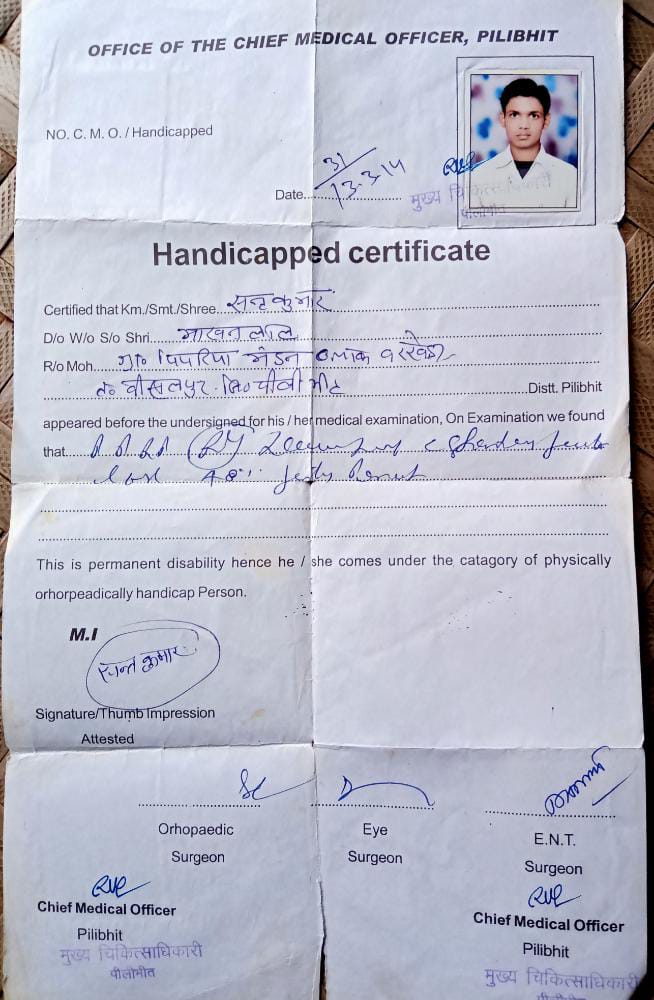 OFFICE OF THE CHIEF MEDICAL OFFICER, PILIBHIT
NO. C. M. O. / Handicapped
31
Date....13.3.14
मुख्य चिकित्साधिकारी
पीलीभीत
Handicapped certificate
Certified that Km./Smt./Shree...सन्त कुमार
D/o W/o S/o Shri...माखन लाल
R/o Moh...ग्रा० पिपरिया मंडन ब्लाक बरखेड़ा
त० बीसलपुर जि० पीलीभीत...Distt. Pilibhit
appeared before the undersigned for his / her medical examination, On Examination we found
that...
40%
This is permanent disability hence he / she comes under the catagory of physically
orhorpeadically handicap Person.
M.I
सन्त कुमार
Signature/Thumb Impression
Attested
Orhopaedic
Surgeon
Eye
Surgeon
E.N.T.
Surgeon
Chief Medical Officer
Pilibhit
मुख्य चिकित्साधिकारी
पीलीभीत
Chief Medical Officer
Pilibhit
मुख्य चिकित्साधिकारी